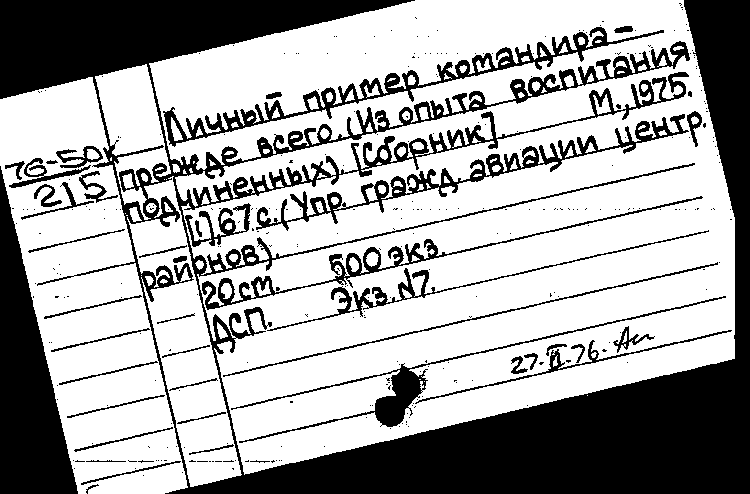 Личный пример командира –
прежде всего. (Из опыта воспитания
подчиненных). [Сборник]. М., 1975.
[1], 67 с. (Упр. гражд. авиации центр.
районов).
20 см. 500 экз.
ДСП. Экз. №7.
76-50к
215
27.VI.76.